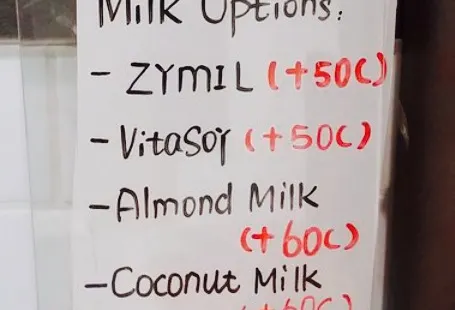 Milk Options:
- ZYMIL (+50C)
- VitaSoy (+50C)
- Almond Milk
(+60C)
- Coconut Milk
(+60C)